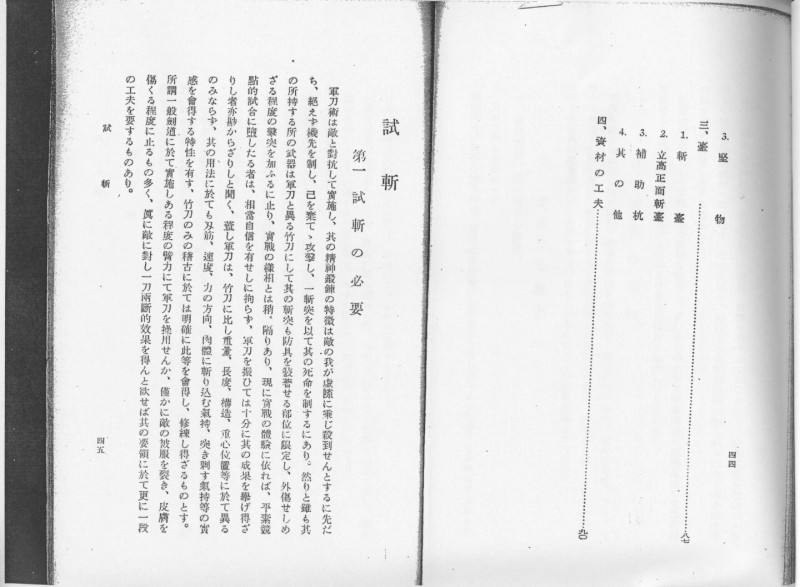 3. 堅物
三、臺……八七
1. 斬臺
2. 立高正面斬臺
3. 補助杭
4. 其の他
四、資材の工夫……
四四
試斬
第一 試斬の必要
軍刀術は敵と對抗して實施し、其の精神鍛錬の特徴は敵の我が虚隙に乘じ殺到せんとするに先だ
ち、絶えず機先を制し、己を棄てゝ攻撃し、一斬突を以て其の死命を制するにあり。然りと雖も其
の所持する所の武器は軍刀と異る竹刀にして其の斬突も防具を裝着せる部位に限定し、外傷せしめ
ざる程度の撃突を加ふるに止り、實戰の樣相とは稍〻隔りあり、現に實戰の體驗に依れば、平素競
點的試合に墮したる者は、相當自信を有せしに拘らず、軍刀を振ひては十分に其の成果を擧げ得ざ
りし者亦尠からざりしと聞く、蓋し軍刀は、竹刀に比し重量、長度、構造、重心位置等に於て異る
のみならず、其の用法に於ても刄筋、速度、力の方向、肉體に斬り込む氣持、突き刺す氣持等の實
感を會得する特性を有す、竹刀のみの稽古に於ては明確に此等を會得し、修練し得ざるものとす。
所謂一般劍道に於て實施しある程度の臂力にて軍刀を操用せんか、僅かに敵の被服を裂き、皮膚を
傷くる程度に止るもの多く、眞に敵に對し一刀兩斷的效果を得んと欲せば其の要領に於て更に一段
の工夫を要するものあり。
試斬
四五